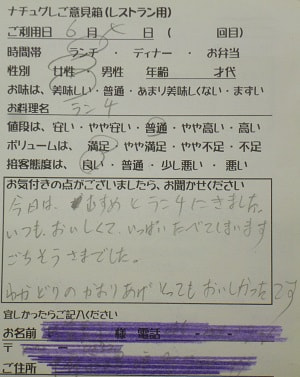 ナチュグしご意見箱(レストラン用)
ご利用日 6 月 日 ( 回目)
時間帯 ランチ・ディナー・お弁当
性別 女性 男性 年齢 才代
お味は、美味しい・普通・あまり美味しくない・まずい
お料理名 ラン4
値段は、安い・やや安い・普通・やや高い・高い
ボリュームは、満足・やや満足・やや不足・不足
接客態度は、良い・普通・少し悪い・悪い
お気付きの点がございましたら、お聞かせください
今日は、むすめとラン4にきました。
いつも、おいしくて、いっぱいたべてしまいます
ごちそうさまでした。
わかどりのかおりあげ とってもおいしかったです
宜しかったらご記入ください
お名前 様 電話
〒
ご住所